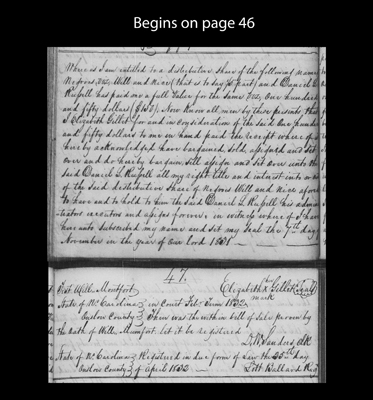 Begins on page 46
Where as I am intitled to a distributive Share of the following named
Negroes, viz, Will and Nice (that is to say part) and Daniel L
Russell has paid me a full Value for the Same viz, One hundred
and fifty dollars ($150) Now Know all men by these presents that
I Elizabeth Gillet for and in consideration of the said One hundred
and fifty dollars to me in hand paid the receipt where of is
here by acknowledged have bargained sold, assigned and set
over and do hereby bargain sell assign and set over unto the
said Daniel L Russell all my right title and interest unto
of the said distributive Share of Negroes Will and Nice afore
to have and to hold to him the said Daniel L Russell his admini
strators executors and assigns forever, in witness where of I have
here unto subscribed my name and set my seal the 7th day
November in the year of our lord 1831
47.
Test Will Montfort Elizabeth her x mark Gillet Seal
State of No Carolina in Court Feby Term 1832
Onslow County Then was the within bill of Sale proven by
the oath of Will Montfort let it be registered
D.W Sanders, clk
State of No Carolina Registered in due form of law the 25th day
Onslow County of April 1832